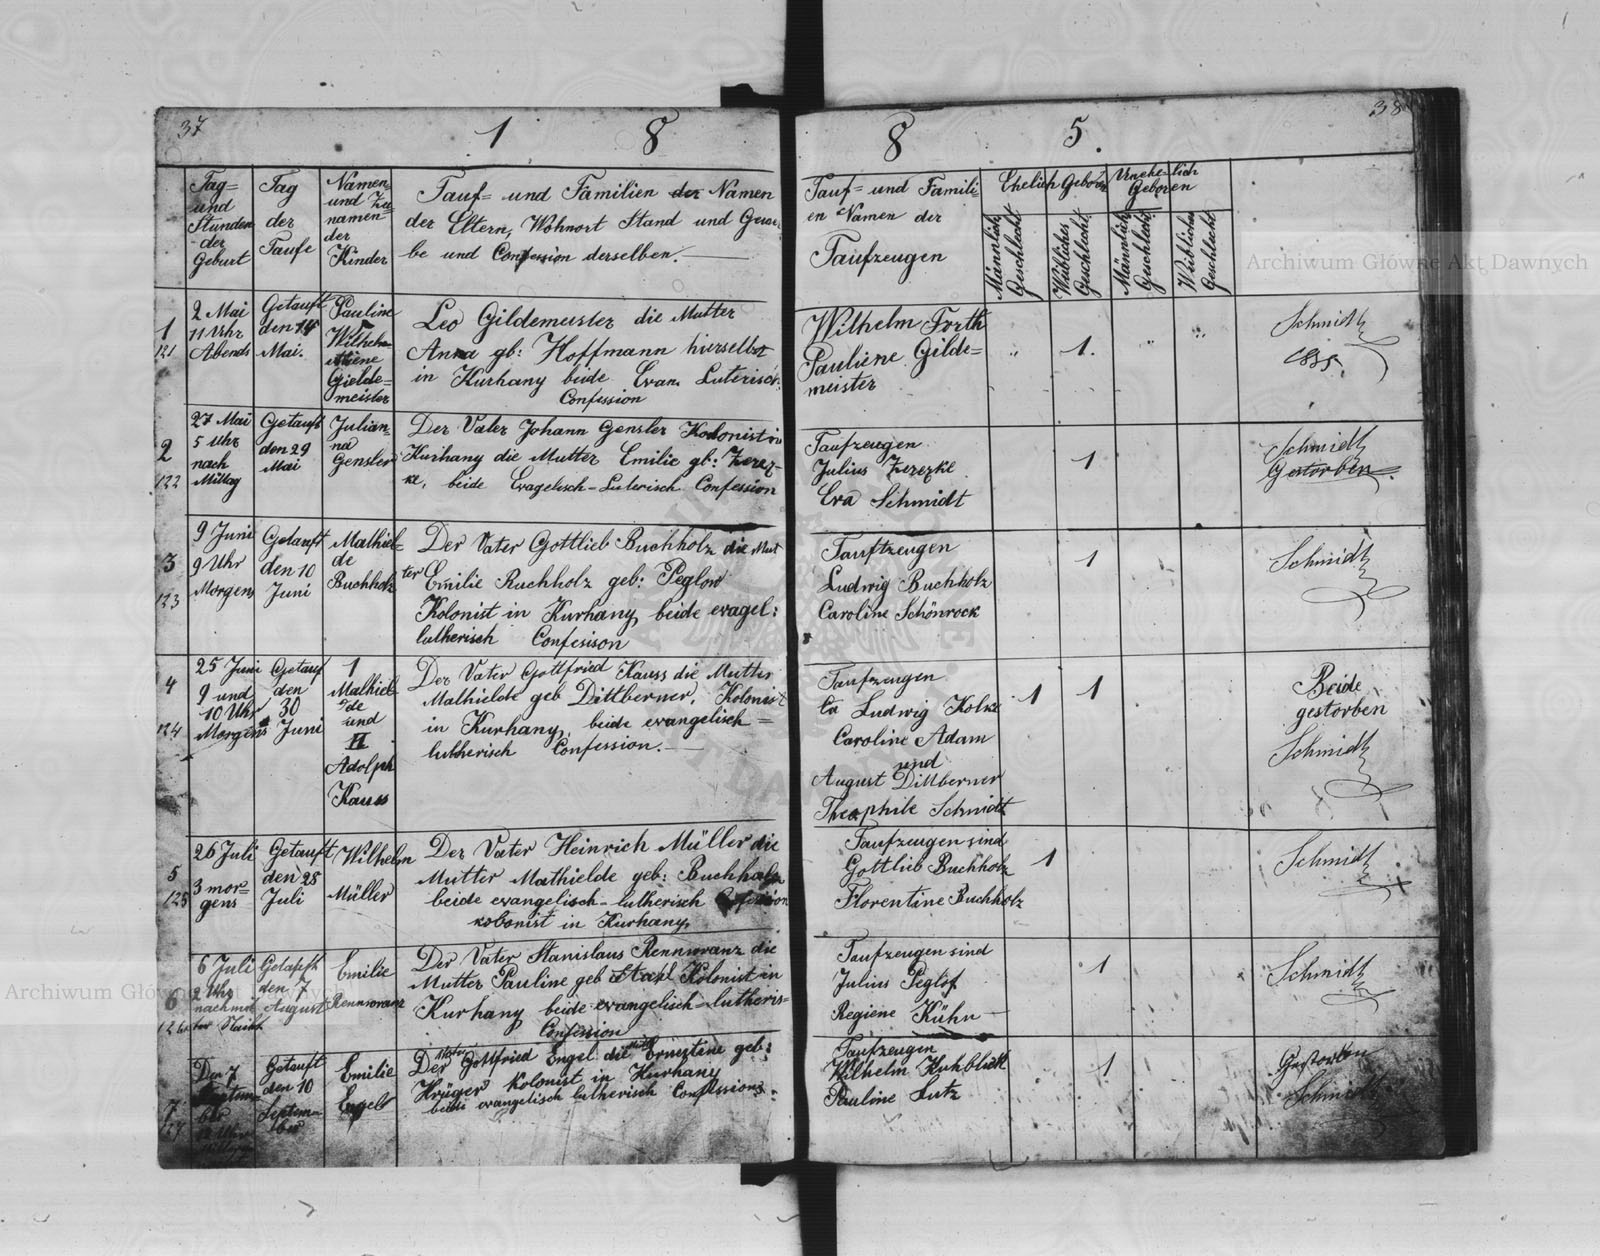 37
1 8
Tag=
und
Stunden
der
Geburt
Tag
der
Taufe
Namen
und Zu=
namen
der
Kinder
Tauf= und Familien der Namen
der Eltern, Wohnort Stand und Gewer
be und Confession derselben.
1
121
2 Mai
11 Uhr
Abends
Getauft
den 14
Mai.
Pauline
Wilhel=
miene
Gielde=
meister
Leo Gildemeister die Mutter
Anna gb: Hoffmann hierselbst
in Kurhany beide Evan. Luterisch:
Confession
2
122
27 Mai
5 Uhr
nach
Mittag
Getauft
den 29
Mai
Julian=
na
Gensler
Der Vater Johann Gensler Kolonist in
Kurhany die Mutter Emilie gb: Zerez-
ke, beide Evagelisch-Luterisch Confession
3
123
9 Juni
9 Uhr
Morgens
Getauft
den 10
Juni
Mathiel=
de
Buchholz
Der Vater Gottlieb Buchholz die Mut
ter Emilie Buchholz geb: Peglow
Kolonist in Kurhany, beide evagel:
lutherisch Confesison
4
124
25 Juni
9 und
10 Uhr
Morgens
Getauf
den
30
Juni
1
Mathiel
de
und
II
Adolph
Kauss
Der Vater Gottfried Kauss die Mutter
Mathielde geb Dittberner, Kolonist
in Kurhany, beide evangelisch=
lutherisch Confession.
5
125
26 Juli
3 mor=
gens
Getauft
den 28
Juli
Wilhelm
Müller
Der Vater Heinrich Müller die
Mutter Mathielde geb: Buchholz
beide evangelisch-lutherisch Confession
kolonist in Kurhany,
6
126
6 Juli
2 Uhr
nachmit
Getauft
den 7
August
Emilie
Rennwranz
Der Vater Stanislaus Rennwranz die
Mutter Pauline geb Kolonist in
Kurhany beide evangelisch=lutheris=
Confession
7
127
Den 7
Septem=
ber
Getauft
den 10
Septem=
ber
Emilie
Engel
Der Vater Gottfried Engel die Mutter Ernstine geb:
Krüger Kolonist in Kurhany
beide evangelisch lutherisch Confession.
38
8 5.
Tauf= und Famili=
en Namen der
Taufzeugen
Ehelich Geborn
Männlich
Geschlecht
Weibliches
Geschlecht
Unehe-lich
Geboren
Männlich
Geschlecht
Weibliches
Geschlecht
Wilhelm Forth
Pauliene Gilde=
meister
" 1. " "
Schmidt
1885.
Taufzeugen
Julius Zerezke
Eva Schmidt
1
Schmidt
Gestorben.
Tauftzeugen
Ludwig Buchholz
Caroline Schönrock
1
Schmidt
Taufzeugen
Ludwig Kolke
Caroline Adam
und
August Dittberner
Theophile Schmidt
1 1
Beide
gestorben
Schmidt
Taufzeugen sind
Gottlieb Buchholz
Florentine Buchholz
1
Schmidt
Taufzeugen sind
Julius Peglof
Regiene Kühn
1
Schmidt
Taufzeugen
Wilhelm Kuhblick
Pauline Lutz
1
Gestorben
Schmidt
Archiwum Główne Akt Dawnych
Archiwum Główne Akt Dawnych